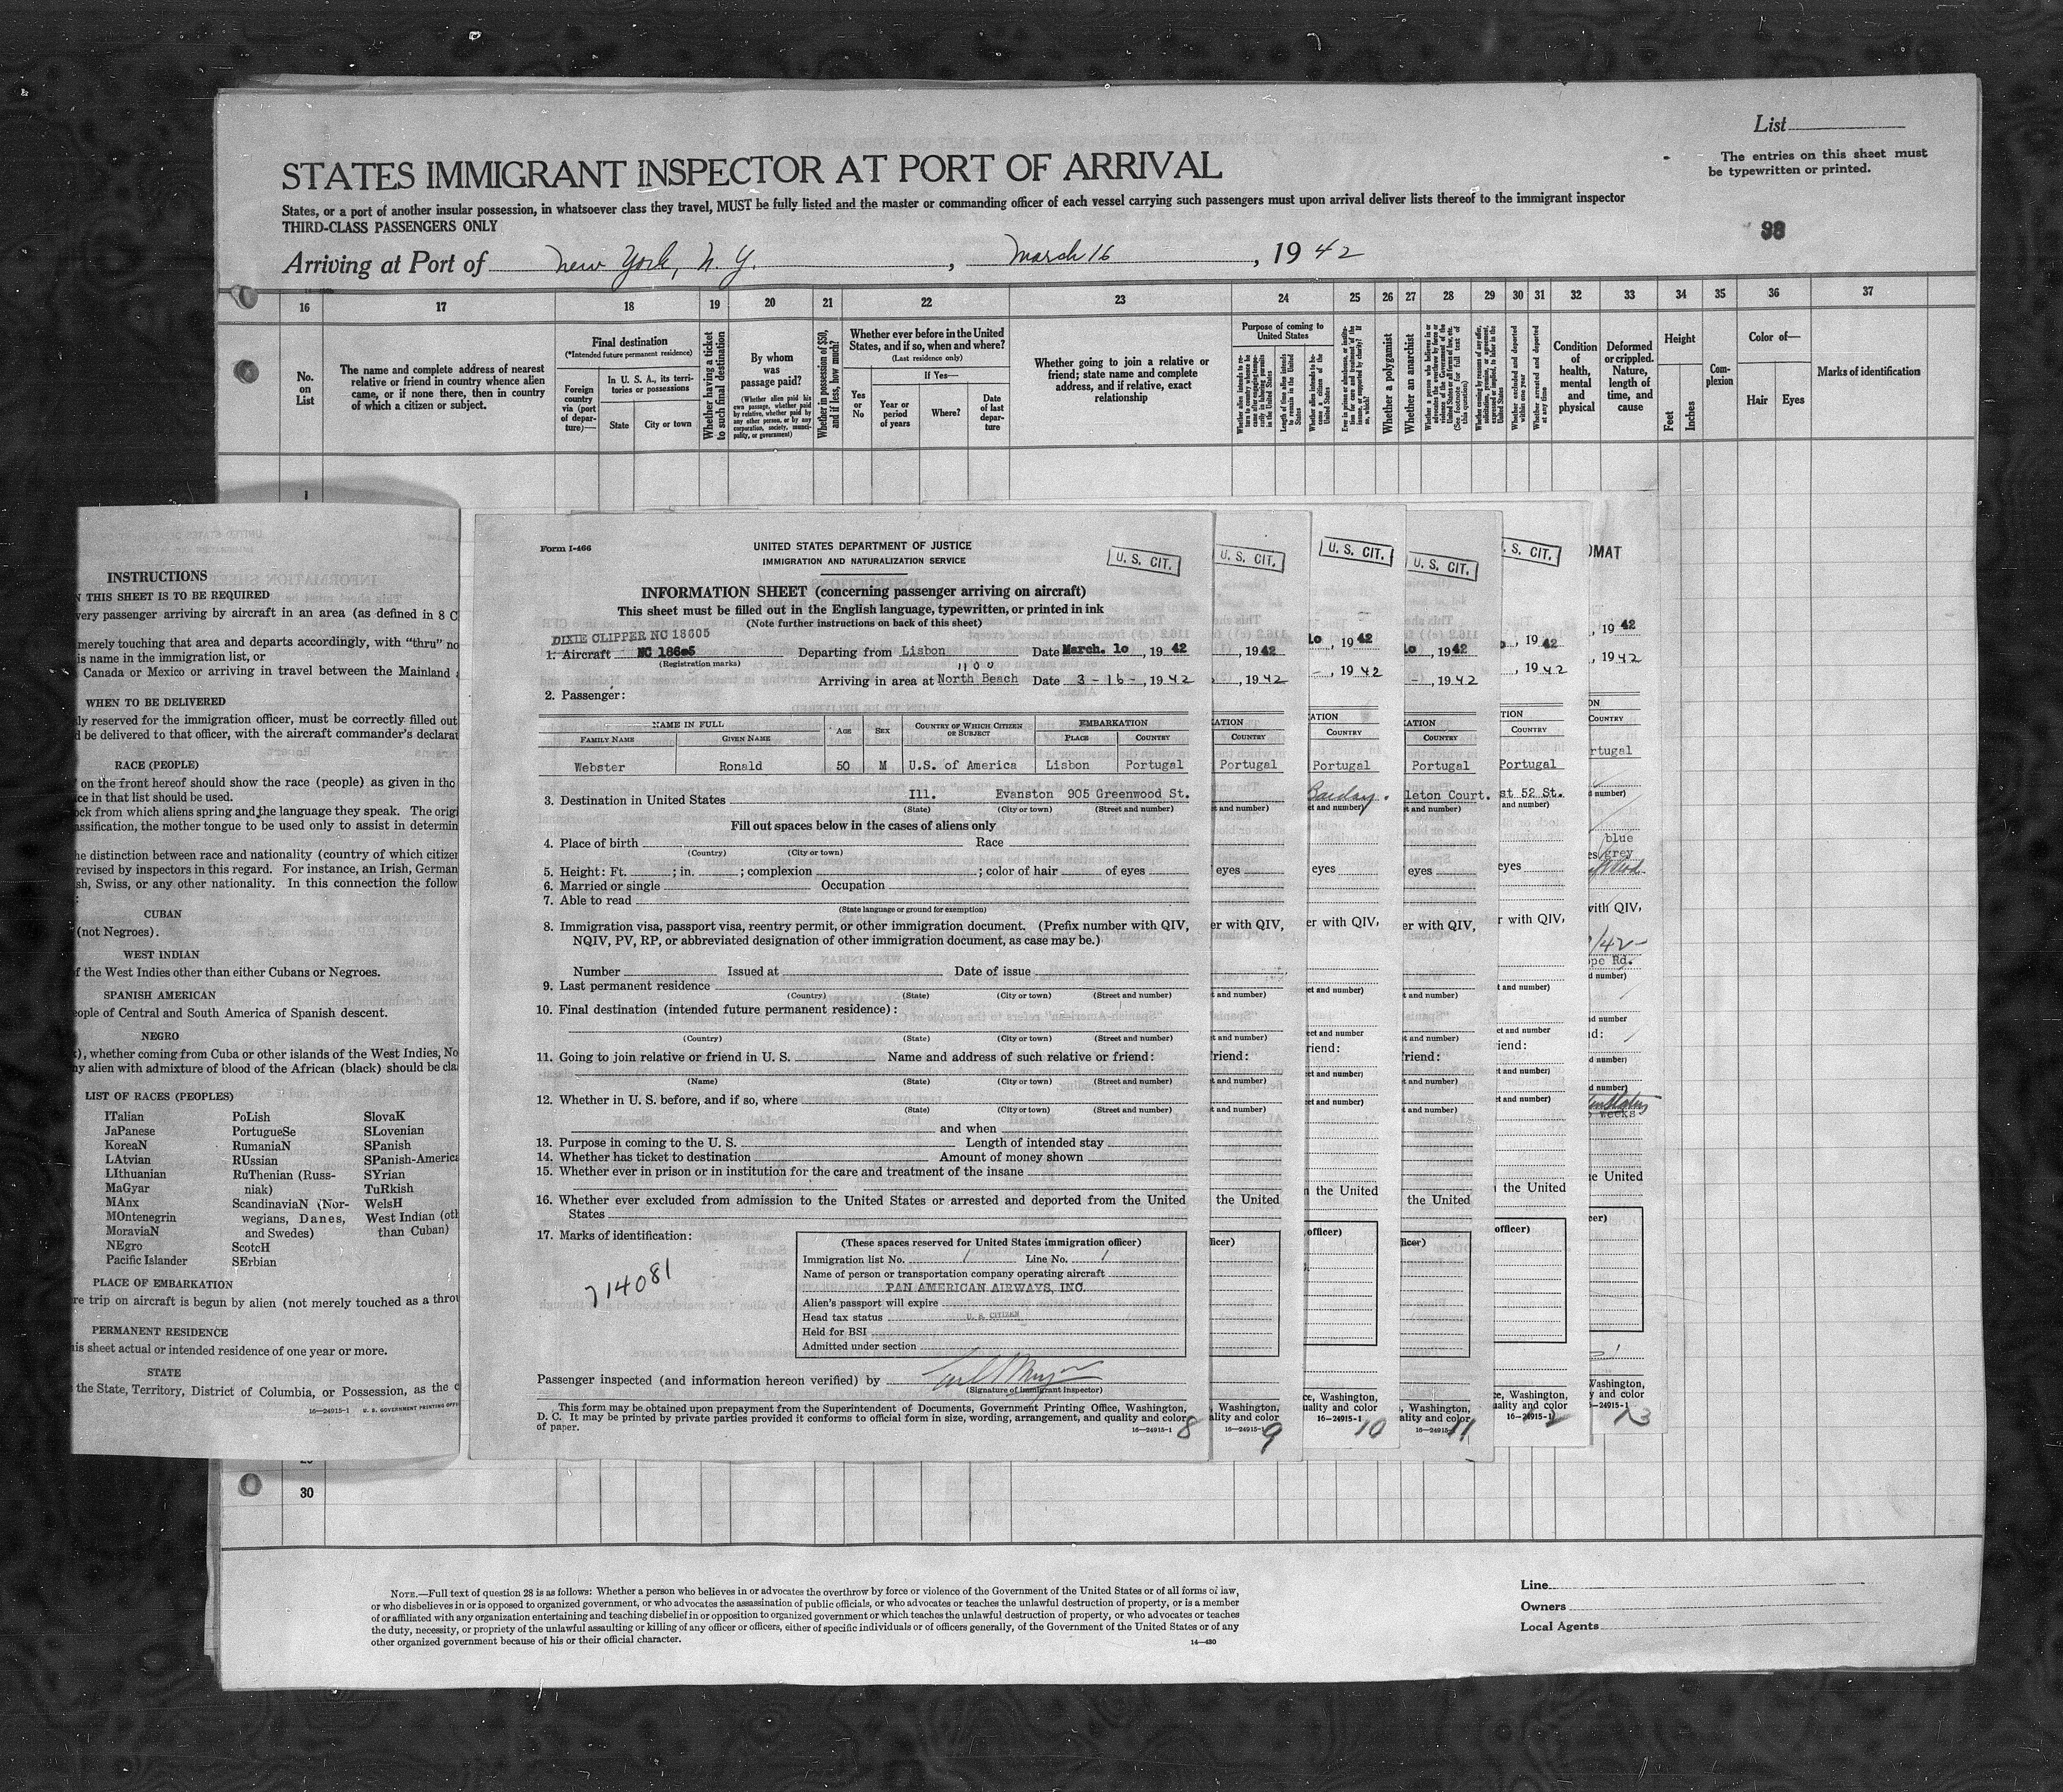 List
The entries on this sheet must
be typewritten or printed.
STATES IMMIGRANT INSPECTOR AT PORT OF ARRIVAL
States, or a port of another insular possession, in whatsoever class they travel, MUST be fully listed and the master or commanding officer of each vessel carrying such passengers must upon arrival deliver lists thereof to the immigrant inspector
THIRD-CLASS PASSENGERS ONLY
98
Arriving at Port of New York, N. Y., March 16, 1942
16 17 18 19 20 21 22 23 24 25 26 27 28 29 30 31 32 33 34 35 36 37
No. on List
The name and complete address of nearest
relative or friend in country whence alien
came, or if none there, then in country
of which a citizen or subject.
Final destination
(*Intended future permanent residence)
Foreign country via (port of departure)—
In U. S. A., its territories or possessions
State
City or town
Whether having a ticket to such final destination
By whom was passage paid?
(Whether alien paid his own passage, whether paid by relative, whether paid by any other person, or by any corporation, society, municipality, or government)
Whether in possession of $50, and if less, how much?
Whether ever before in the United
States, and if so, when and where?
(Last residence only)
Yes or No
If Yes—
Year or period of years
Where?
Date of last departure
Whether going to join a relative or
friend; state name and complete
address, and if relative, exact
relationship
Purpose of coming to United States
Length of time alien intends to remain in the United States
Whether alien intends to become a citizen of the United States
Whether a polygamist
Whether an anarchist
Condition of health, mental and physical
Deformed or crippled. Nature, length of time, and cause
Height
Feet
Inches
Complexion
Color of—
Hair
Eyes
Marks of identification
1
INSTRUCTIONS
N THIS SHEET IS TO BE REQUIRED
very passenger arriving by aircraft in an area (as defined in 8 C
merely touching that area and departs accordingly, with "thru" no
is name in the immigration list, or
Canada or Mexico or arriving in travel between the Mainland
WHEN TO BE DELIVERED
ly reserved for the immigration officer, must be correctly filled out
d be delivered to that officer, with the aircraft commander's declarat
RACE (PEOPLE)
on the front hereof should show the race (people) as given in the
ce in that list should be used.
ock from which aliens spring and the language they speak. The origi
assification, the mother tongue to be used only to assist in determin
he distinction between race and nationality (country of which citizen
revised by inspectors in this regard. For instance, an Irish, German
sh, Swiss, or any other nationality. In this connection the follow
:
CUBAN
(not Negroes).
WEST INDIAN
f the West Indies other than either Cubans or Negroes.
SPANISH AMERICAN
eople of Central and South America of Spanish descent.
NEGRO
), whether coming from Cuba or other islands of the West Indies, No
ny alien with admixture of blood of the African (black) should be cla
LIST OF RACES (PEOPLES)
ITalian PoLish SlovaK
JaPanese PortugueSe SLovenian
KoreaN RumaniaN SPanish
LAtvian RUssian SPanish-America
LIthuanian RuThenian (Russ- SYrian
MaGyar niak) TuRkish
MAnx ScandinaviaN (Nor- WelsH
MOntenegrin wegians, Danes, West Indian (oth
MoraviaN and Swedes) than Cuban)
NEgro ScotcH
Pacific Islander SErbian
PLACE OF EMBARKATION
re trip on aircraft is begun by alien (not merely touched as a throu
PERMANENT RESIDENCE
his sheet actual or intended residence of one year or more.
STATE
the State, Territory, District of Columbia, or Possession, as the c
16—24915-1 U. S. GOVERNMENT PRINTING OFFI
Form I-466
UNITED STATES DEPARTMENT OF JUSTICE
IMMIGRATION AND NATURALIZATION SERVICE
U. S. CIT.
INFORMATION SHEET (concerning passenger arriving on aircraft)
This sheet must be filled out in the English language, typewritten, or printed in ink
(Note further instructions on back of this sheet)
DIXIE CLIPPER NC 18605
1. Aircraft NC 18605 Departing from Lisbon Date March. 10, 1942
(Registration marks)
1100
Arriving in area at North Beach Date 3-16-, 1942
2. Passenger:
NAME IN FULL AGE SEX COUNTRY OF WHICH CITIZEN OR SUBJECT EMBARKATION
FAMILY NAME GIVEN NAME PLACE COUNTRY
Webster Ronald 50 M U.S. of America Lisbon Portugal
3. Destination in United States Ill. Evanston 905 Greenwood St.
(State) (City or town) (Street and number)
Fill out spaces below in the cases of aliens only
4. Place of birth Race
(Country) (City or town)
5. Height: Ft. ; in. ; complexion ; color of hair of eyes
6. Married or single Occupation
7. Able to read
(State language or ground for exemption)
8. Immigration visa, passport visa, reentry permit, or other immigration document. (Prefix number with QIV,
NQIV, PV, RP, or abbreviated designation of other immigration document, as case may be.)
Number Issued at Date of issue
9. Last permanent residence
(Country) (State) (City or town) (Street and number)
10. Final destination (intended future permanent residence):
(Country) (State) (City or town) (Street and number)
11. Going to join relative or friend in U. S. Name and address of such relative or friend:
(Name) (State) (City or town) (Street and number)
12. Whether in U. S. before, and if so, where
(State) (City or town) (Street and number)
and when
13. Purpose in coming to the U. S. Length of intended stay
14. Whether has ticket to destination Amount of money shown
15. Whether ever in prison or in institution for the care and treatment of the insane
16. Whether ever excluded from admission to the United States or arrested and deported from the United
States
17. Marks of identification:
714081
(These spaces reserved for United States immigration officer)
Immigration list No. 1 Line No. 1
Name of person or transportation company operating aircraft
PAN AMERICAN AIRWAYS, INC.
Alien's passport will expire
Head tax status U. S. CITIZEN
Held for BSI
Admitted under section
Passenger inspected (and information hereon verified) by
(Signature of immigrant inspector)
This form may be obtained upon prepayment from the Superintendent of Documents, Government Printing Office, Washington,
D. C. It may be printed by private parties provided it conforms to official form in size, wording, arrangement, and quality and color
of paper.
16—24915-1 8
U. S. CIT.
, 1942
, 1942
Portugal
9
U. S. CIT.
10, 1942
, 1942
Portugal
10
U. S. CIT.
10, 1942
, 1942
Portugal
leton Court.
11
. S. CIT.
, 1942
, 1942
Portugal
st 52 St.
12
OMAT
, 1942
, 1942
rtugal
blue
grey
ope Rd.
weeks
13
30
NOTE.—Full text of question 28 is as follows: Whether a person who believes in or advocates the overthrow by force or violence of the Government of the United States or of all forms of law,
or who disbelieves in or is opposed to organized government, or who advocates the assassination of public officials, or who advocates or teaches the unlawful destruction of property, or is a member
of or affiliated with any organization entertaining and teaching disbelief in or opposition to organized government or which teaches the unlawful destruction of property, or who advocates or teaches
the duty, necessity, or propriety of the unlawful assaulting or killing of any officer or officers, either of specific individuals or of officers generally, of the Government of the United States or of any
other organized government because of his or their official character.
14—430
Line
Owners
Local Agents